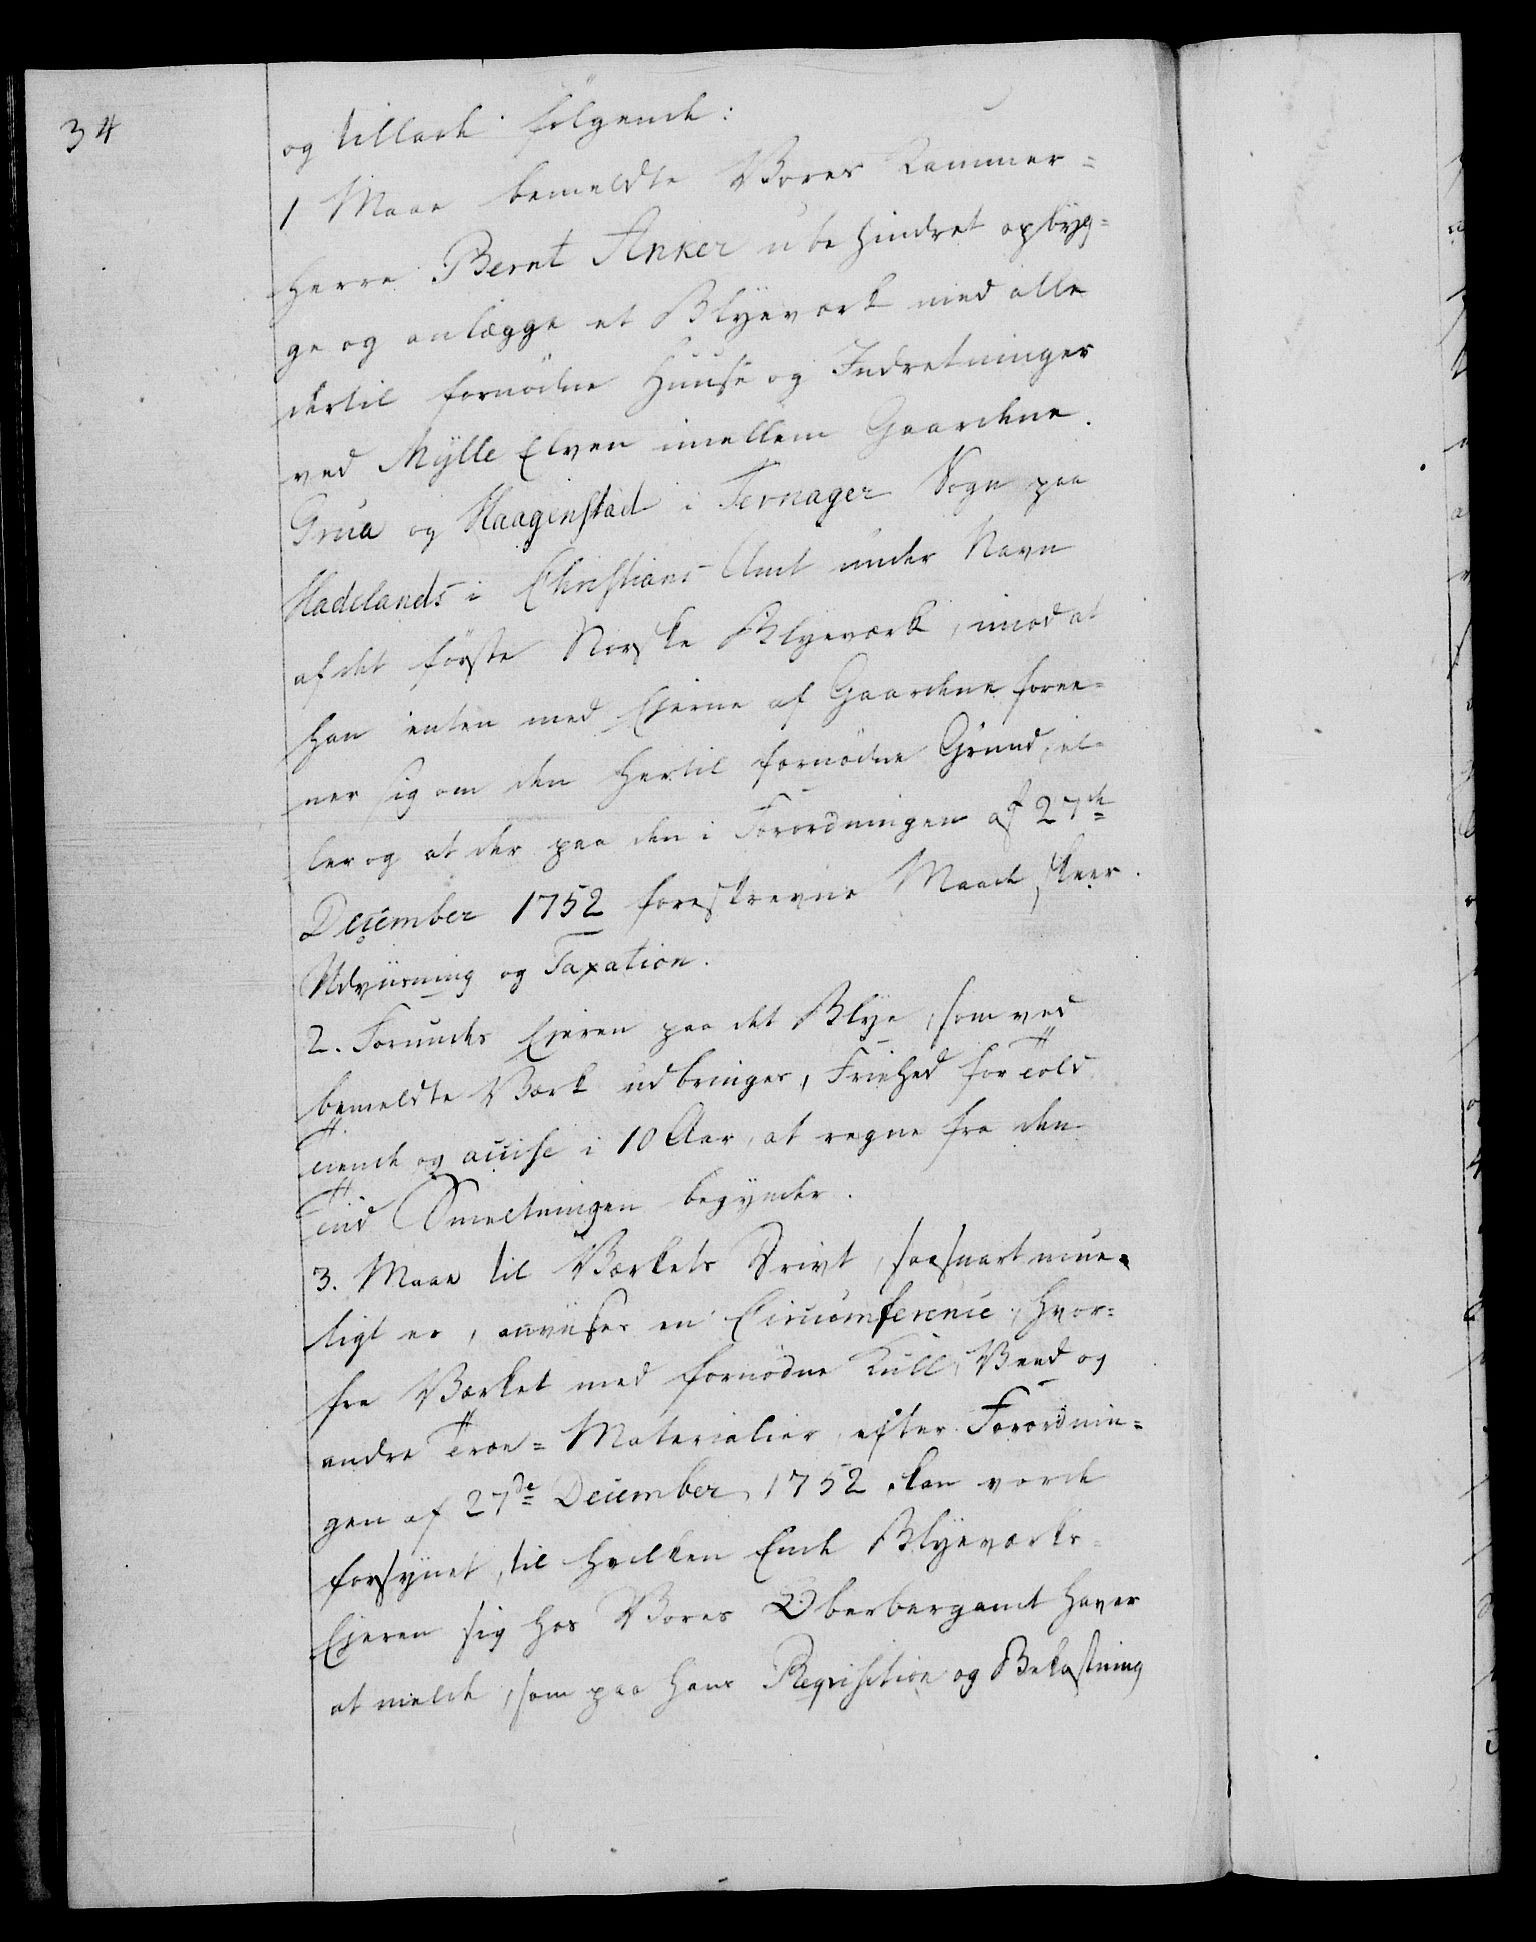 34
og tillade følgende:
1 Maae bemeldte Vores Kammer=
herre Bernt Anker ubehindret opbyg=
ge og anlægge et Blyeværk med alle
dertil fornødne Huuse og Indretninger
ved Mylle Elven imellem Gaardene
Grua og Haagenstad i Jevnager Sogn paa
Hadelands i Christians Amt under Navn
af det første Norske Blyeværk, imod at
han enten med Eierne af Gaardene foree=
ner sig om den hertil fornødne Grund, el=
ler og at der paa den i Forordningen af 27de
December 1752 foreskrevne Maade skeer
Udviisning og Taxation.
2. Forundes Eieren paa det Blye, som ved
bemeldte Værk udbringes, Friehed for Told
Tiende og accise i 10 Aar, at regne fra den
Tiid Smeltningen begynder.
3. Maae til Værkets Drivt, saasnart mue=
ligt er, anviises en Circumference, hvor=
fra Værket med fornødne Kull, Veed og
andre Træe=Materialier, efter Forordnin=
gen af 27de December 1752 kan vorde
forsynet, til hvilken Ende Blyeværks=
Eieren sig hos Vores Oberbergamt haver
at melde, som paa hans Reqvisition og Bekostning